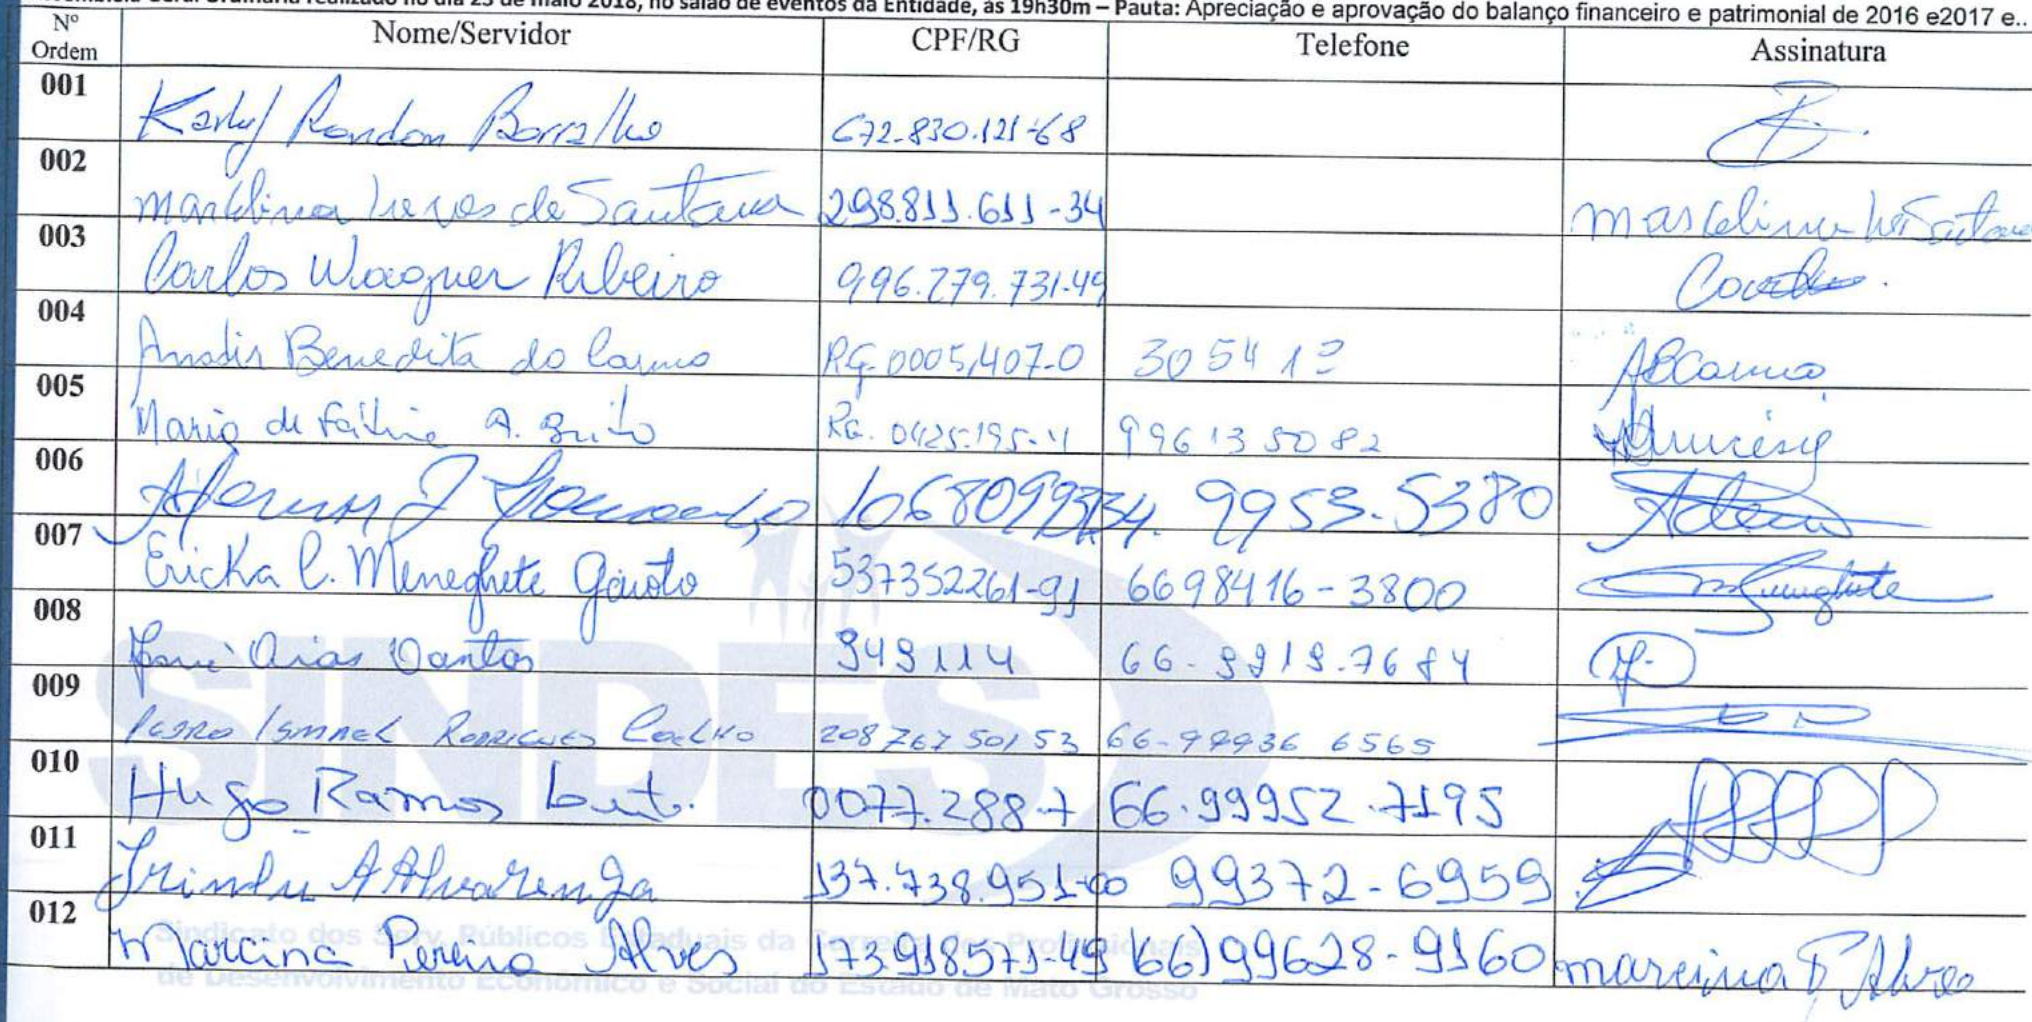 realizado no dia 23 de maio 2018, no salão de eventos da Entidade, às 19h30m – Pauta: Apreciação e aprovação do balanço financeiro e patrimonial de 2016 e2017 e..
Nº Ordem Nome/Servidor CPF/RG Telefone Assinatura
001 Karly Rondon Borralho 672.830.121-68
002 Marcelina Neves de Santana 298.811.611-34
003 Carlos Wagner Ribeiro 996.279.731-49
004 Anadir Benedita do Carmo RG-0005,407-0 30 54 1 ABCarmo
005 Maria de Fátima A. Brito RG. 0425.195-4 996135082
006 9953.5380
007 Ericka C. Meneghete Gaioto 537352261-91 6698416-3800
008 José Dias Dantas 949114 66-9919.7684
009 Pedro Ismael Rodrigues Coelho 208 767 501 53 66-99936 6565
010 Hugo Ramos 0077.288-7 66.99952.7195
011 A Alvarenga 137.738.951-00 99372-6959
012 Marcina Pereira Alves 173918571-49 (66)99628-9160 marcina P. Alves
SINDES
Sindicato dos Serv. Públicos Estaduais da Carreira dos Profissionais
de Desenvolvimento Econômico e Social do Estado de Mato Grosso